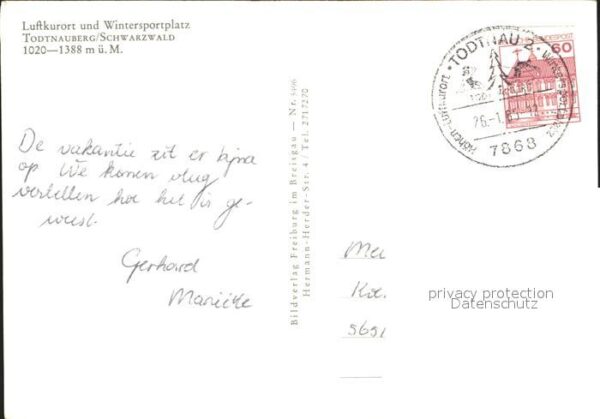 Luftkurort und Wintersportplatz
TODTNAUBERG/SCHWARZWALD
1020—1388 m ü. M.
De vakantie zit er bijna
op We komen vlug
vertellen hoe het is ge-
weest.
Gerhard
Marieke
Bildverlag Freiburg im Breisgau — Nr.
Hermann-Herder-Str. 4 / Tel. 2717270
TODTNAU 2
Höhen-Luftkurort
Wintersportplatz
7868
60
privacy protection
Datenschutz